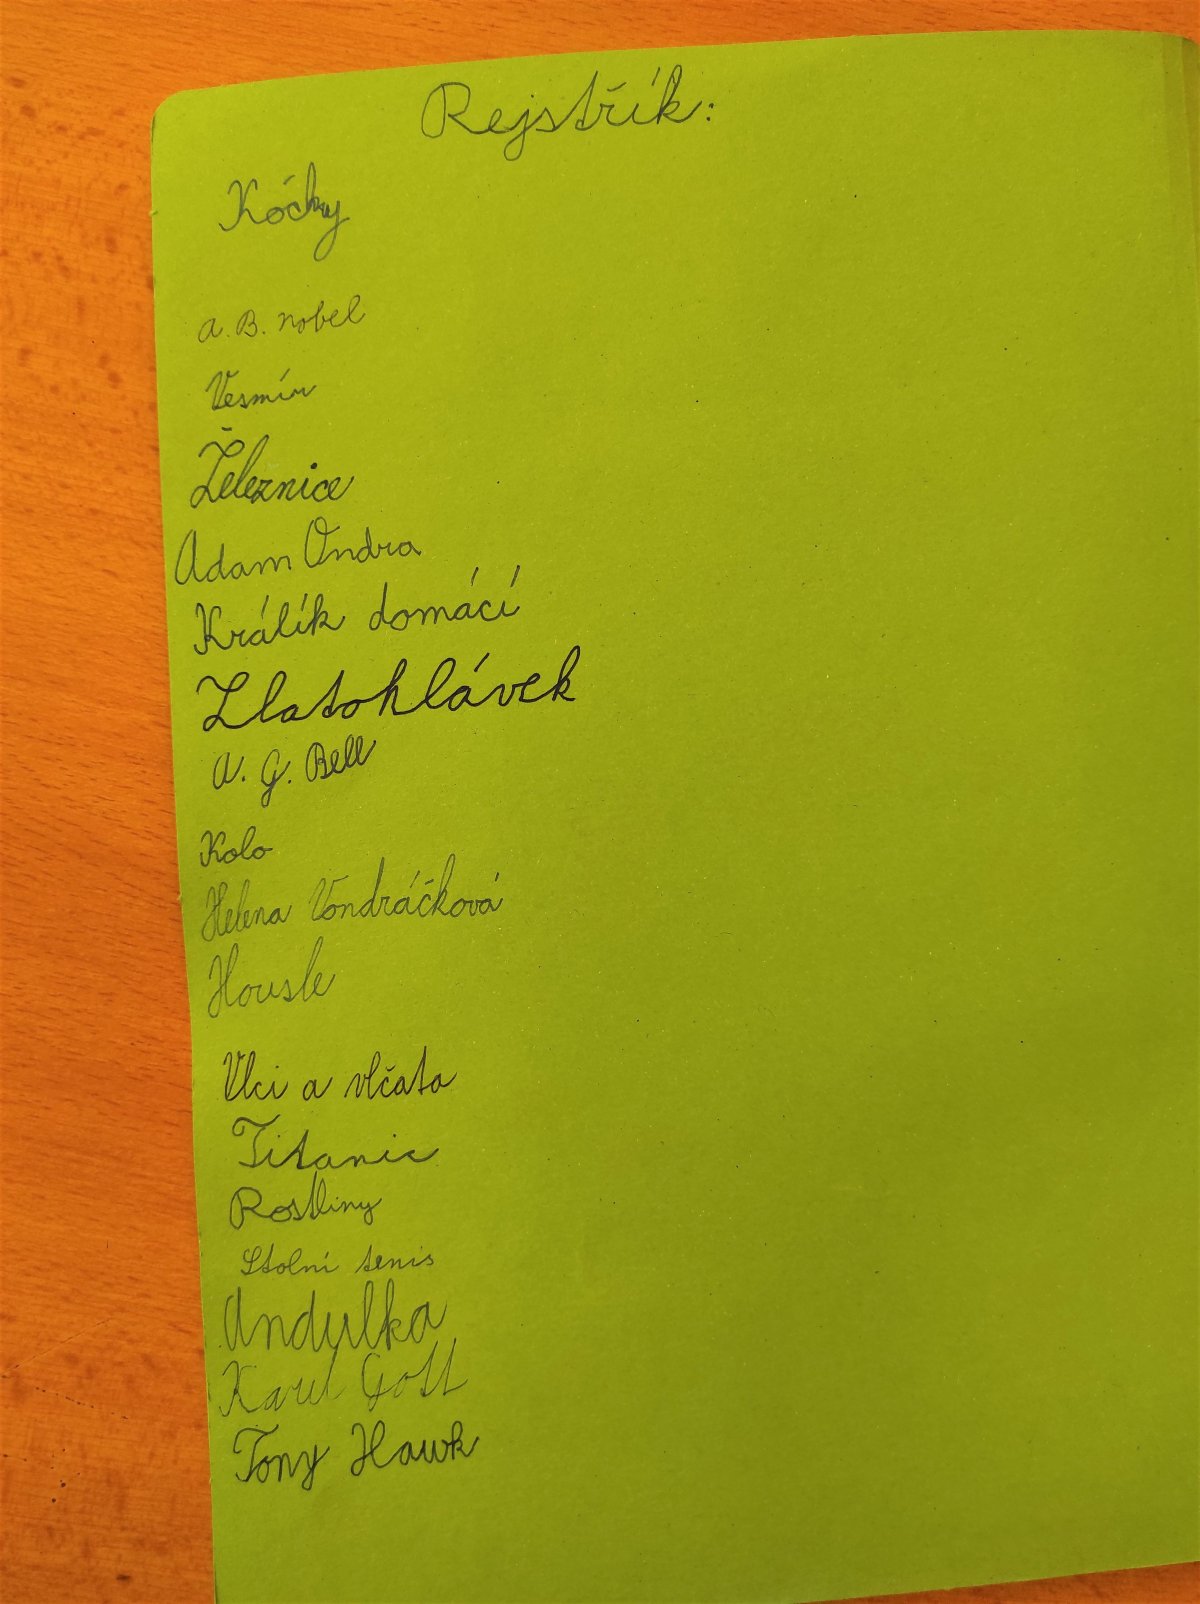 Rejstřík:
Kócky
A. B. nobel
Vesmír
Železnice
Adam Ondra
Králík domácí
Zlatohlávek
A. G. Bell
Kolo
Helena Vondráčková
Housle
Vlci a vlčata
Titanic
Rostliny
Stolní tenis
Andulka
Karel Gott
Tony Hawk